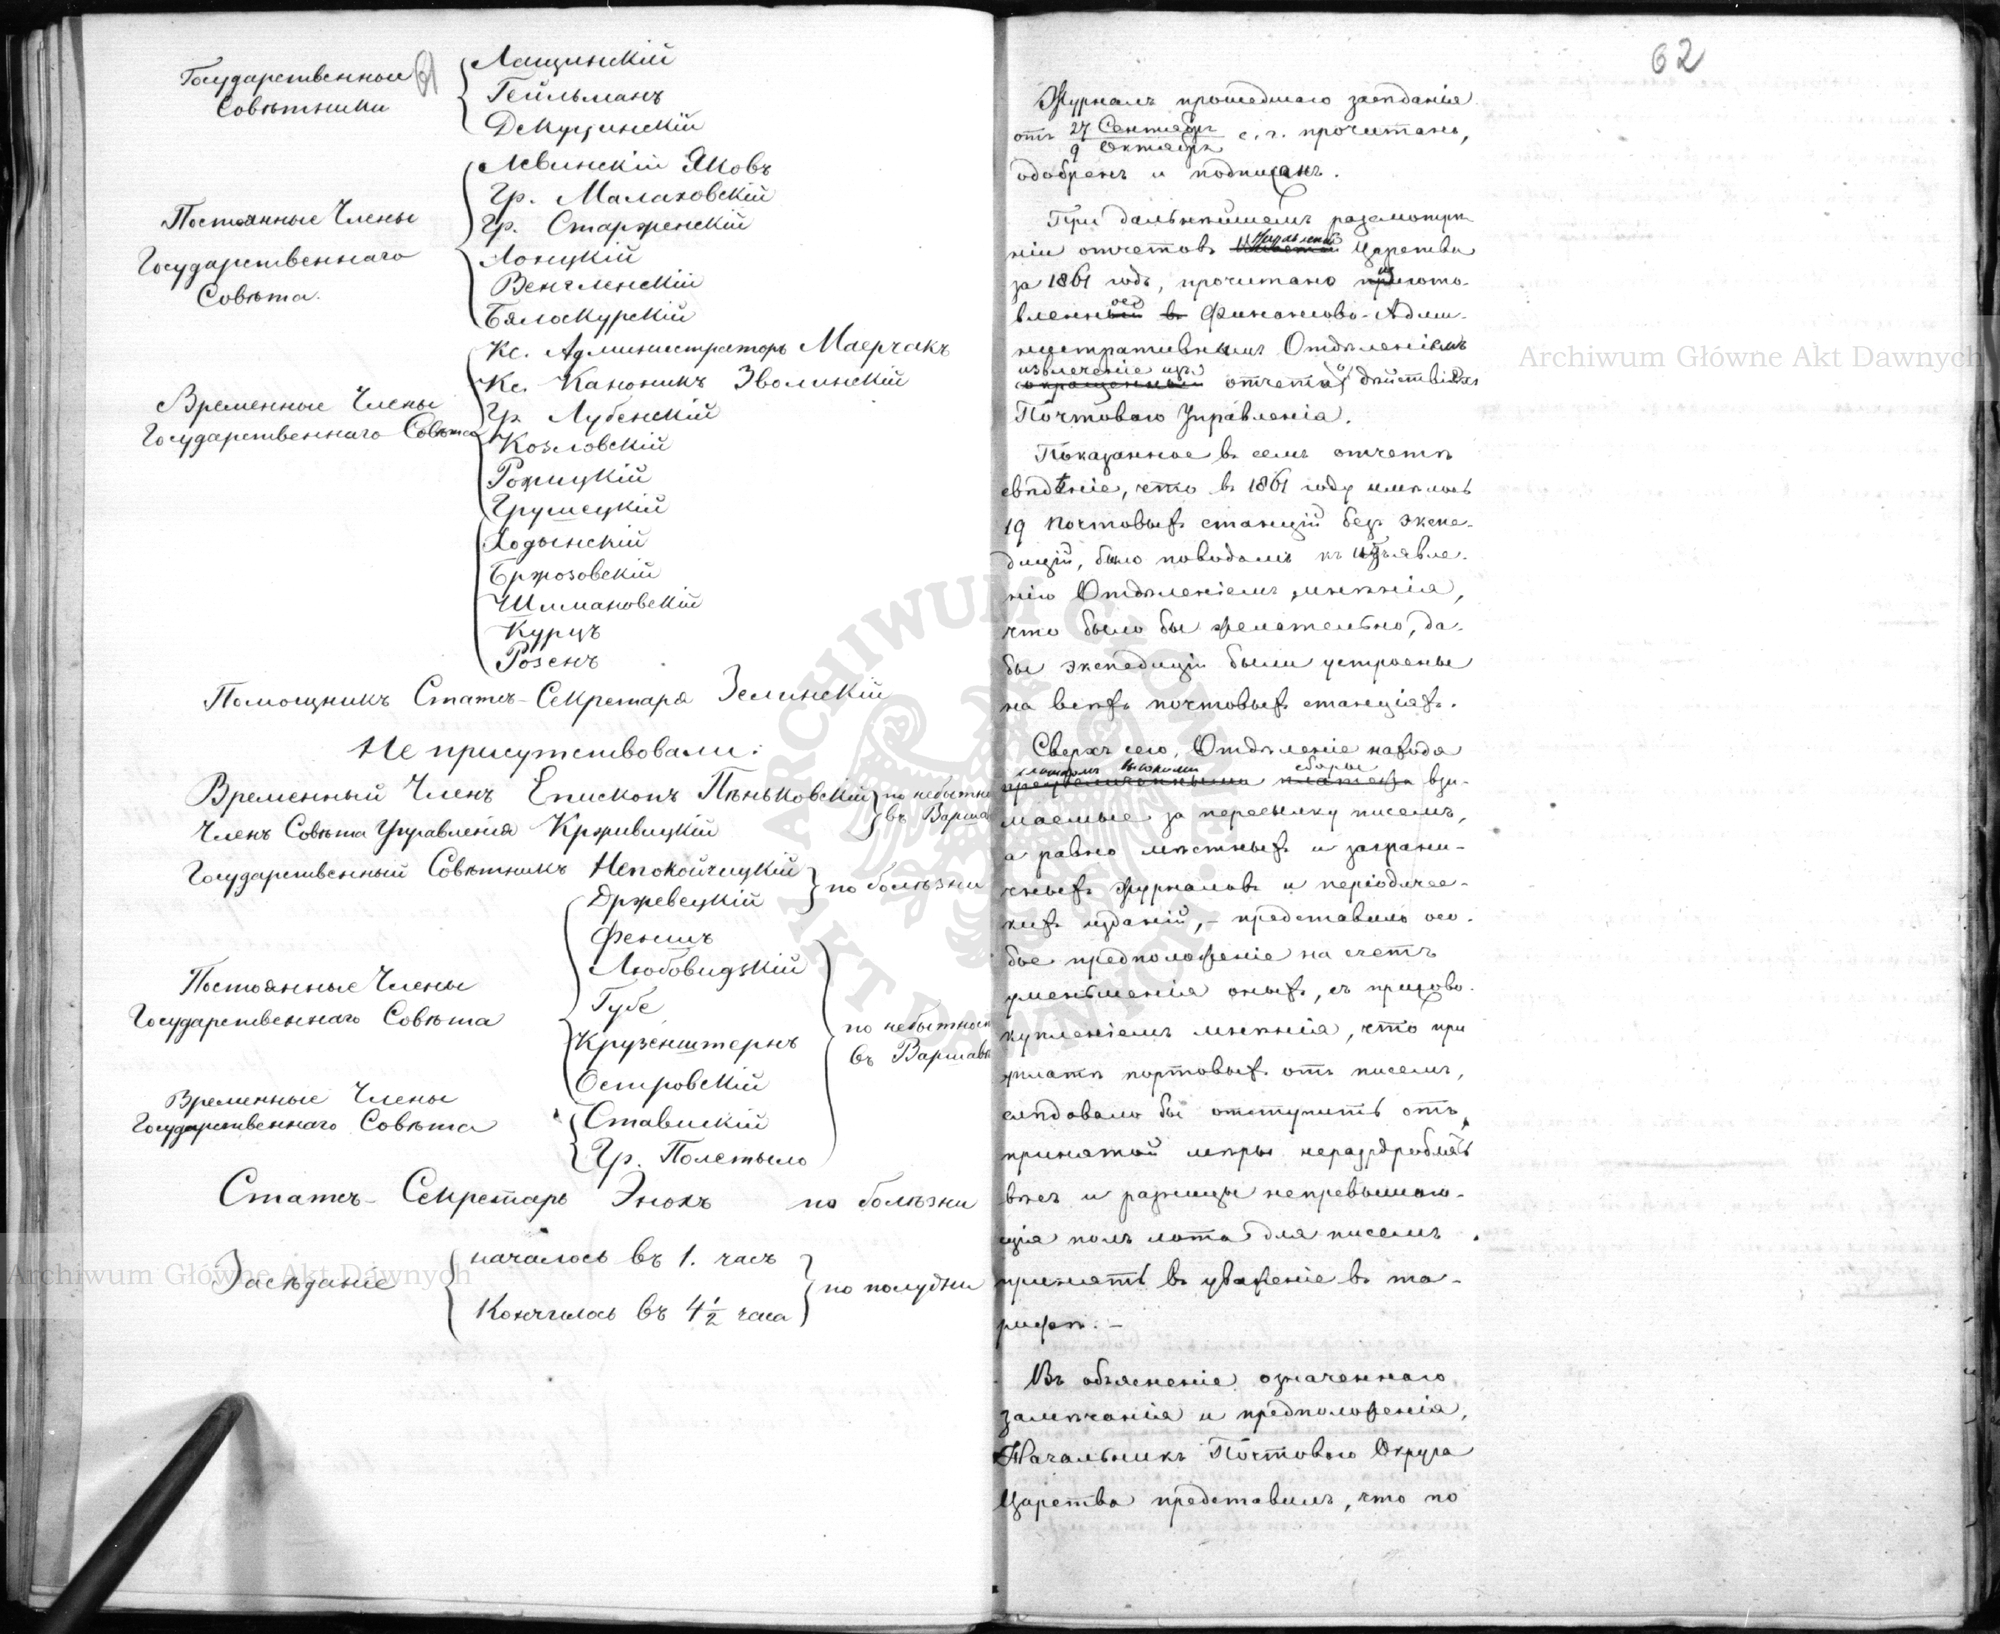 Государственные
Совѣтники
Лащинскій
Гейльманъ
Декуцинскій
Постоянные Члены
Государственнаго
Совѣта.
Левинскій Яковъ
Гр. Малаховскій
Гр. Старженскій
Лонцкій
Венгленскій
Бялоскурскій
Временные Члены
Государственнаго Совѣта
Кс. Администраторъ Маерчакъ
Кс. Каноникъ Зволинскій
Гр. Лубенскій
Козловскій
Рожицкій
Грушецкій
Ходынскій
Бржозовскій
Шимановскій
Курцъ
Розенъ
Помощникъ Статсъ-Секретаря Зелинскій
Не присутствовали:
Временный Членъ Епископъ Пѣньковскій
Членъ Совѣта Управленія Крживицкій
по небытно
въ Варша
Государственный Совѣтникъ Непокойчицкій
Држевецкій
по болѣзни
Постоянные Члены
Государственнаго Совѣта
Феншъ
Любовидзкій
Губе
Крузенштернъ
Островскій
Временные Члены
Государственнаго Совѣта
Ставискій
Гр. Полетыло
по небытнос
въ Варшавѣ
Статсъ-Секретарь Энохъ по болѣзни
Засѣданіе
началось въ 1. часъ
Кончилось въ 4 1/2 часа
по полудни
62
Журналъ прошедшаго засѣданія
отъ 27 Сентября / 9 Октября с. г. прочитанъ,
одобренъ и подписанъ.
При дальнѣйшемъ разсмотрѣ-
ніи отчетовъ Царства
за 1861 годъ, прочитано изгото-
вленное Финансово-Адми-
нистративнымъ Отдѣленіемъ
извлеченіе изъ отчета о дѣйствіяхъ
Почтоваго Управленія.
Показанное въ семъ отчетѣ
свѣдѣніе, что въ 1861 году имѣлось
19 почтовыхъ станцій безъ экспе-
дицій, было поводомъ къ изъявле-
нію Отдѣленіемъ мнѣнія,
что было бы желательно, да-
бы экспедиціи были устроены
на всѣхъ почтовыхъ станціяхъ.
Сверхъ сего, Отдѣленіе находя
слишкомъ высокими сборы
чрезвычайными платежи взи-
маемые за пересылку писемъ,
а равно мѣстныхъ и заграни-
чныхъ журналовъ и періодичес-
кихъ изданій, - представило осо-
бое предположеніе на счетъ
уменьшенія оныхъ, съ присово-
купленіемъ мнѣнія, что при
платѣ портовыхъ отъ писемъ,
слѣдовало бы отступить отъ
принятой мѣры нераздроблять
вѣсъ и разницы непревышаю-
щія полъ лота для писемъ
принять въ уваженіе въ та-
рифѣ. -
Въ объясненіе означеннаго
замѣчанія и предположенія,
Начальникъ Почтоваго Округа
Царства представилъ, что по
Archiwum Główne Akt Dawnych
Archiwum Główne Akt Dawnych
ARCHIWUM GŁÓWNE AKT DAWNYCH